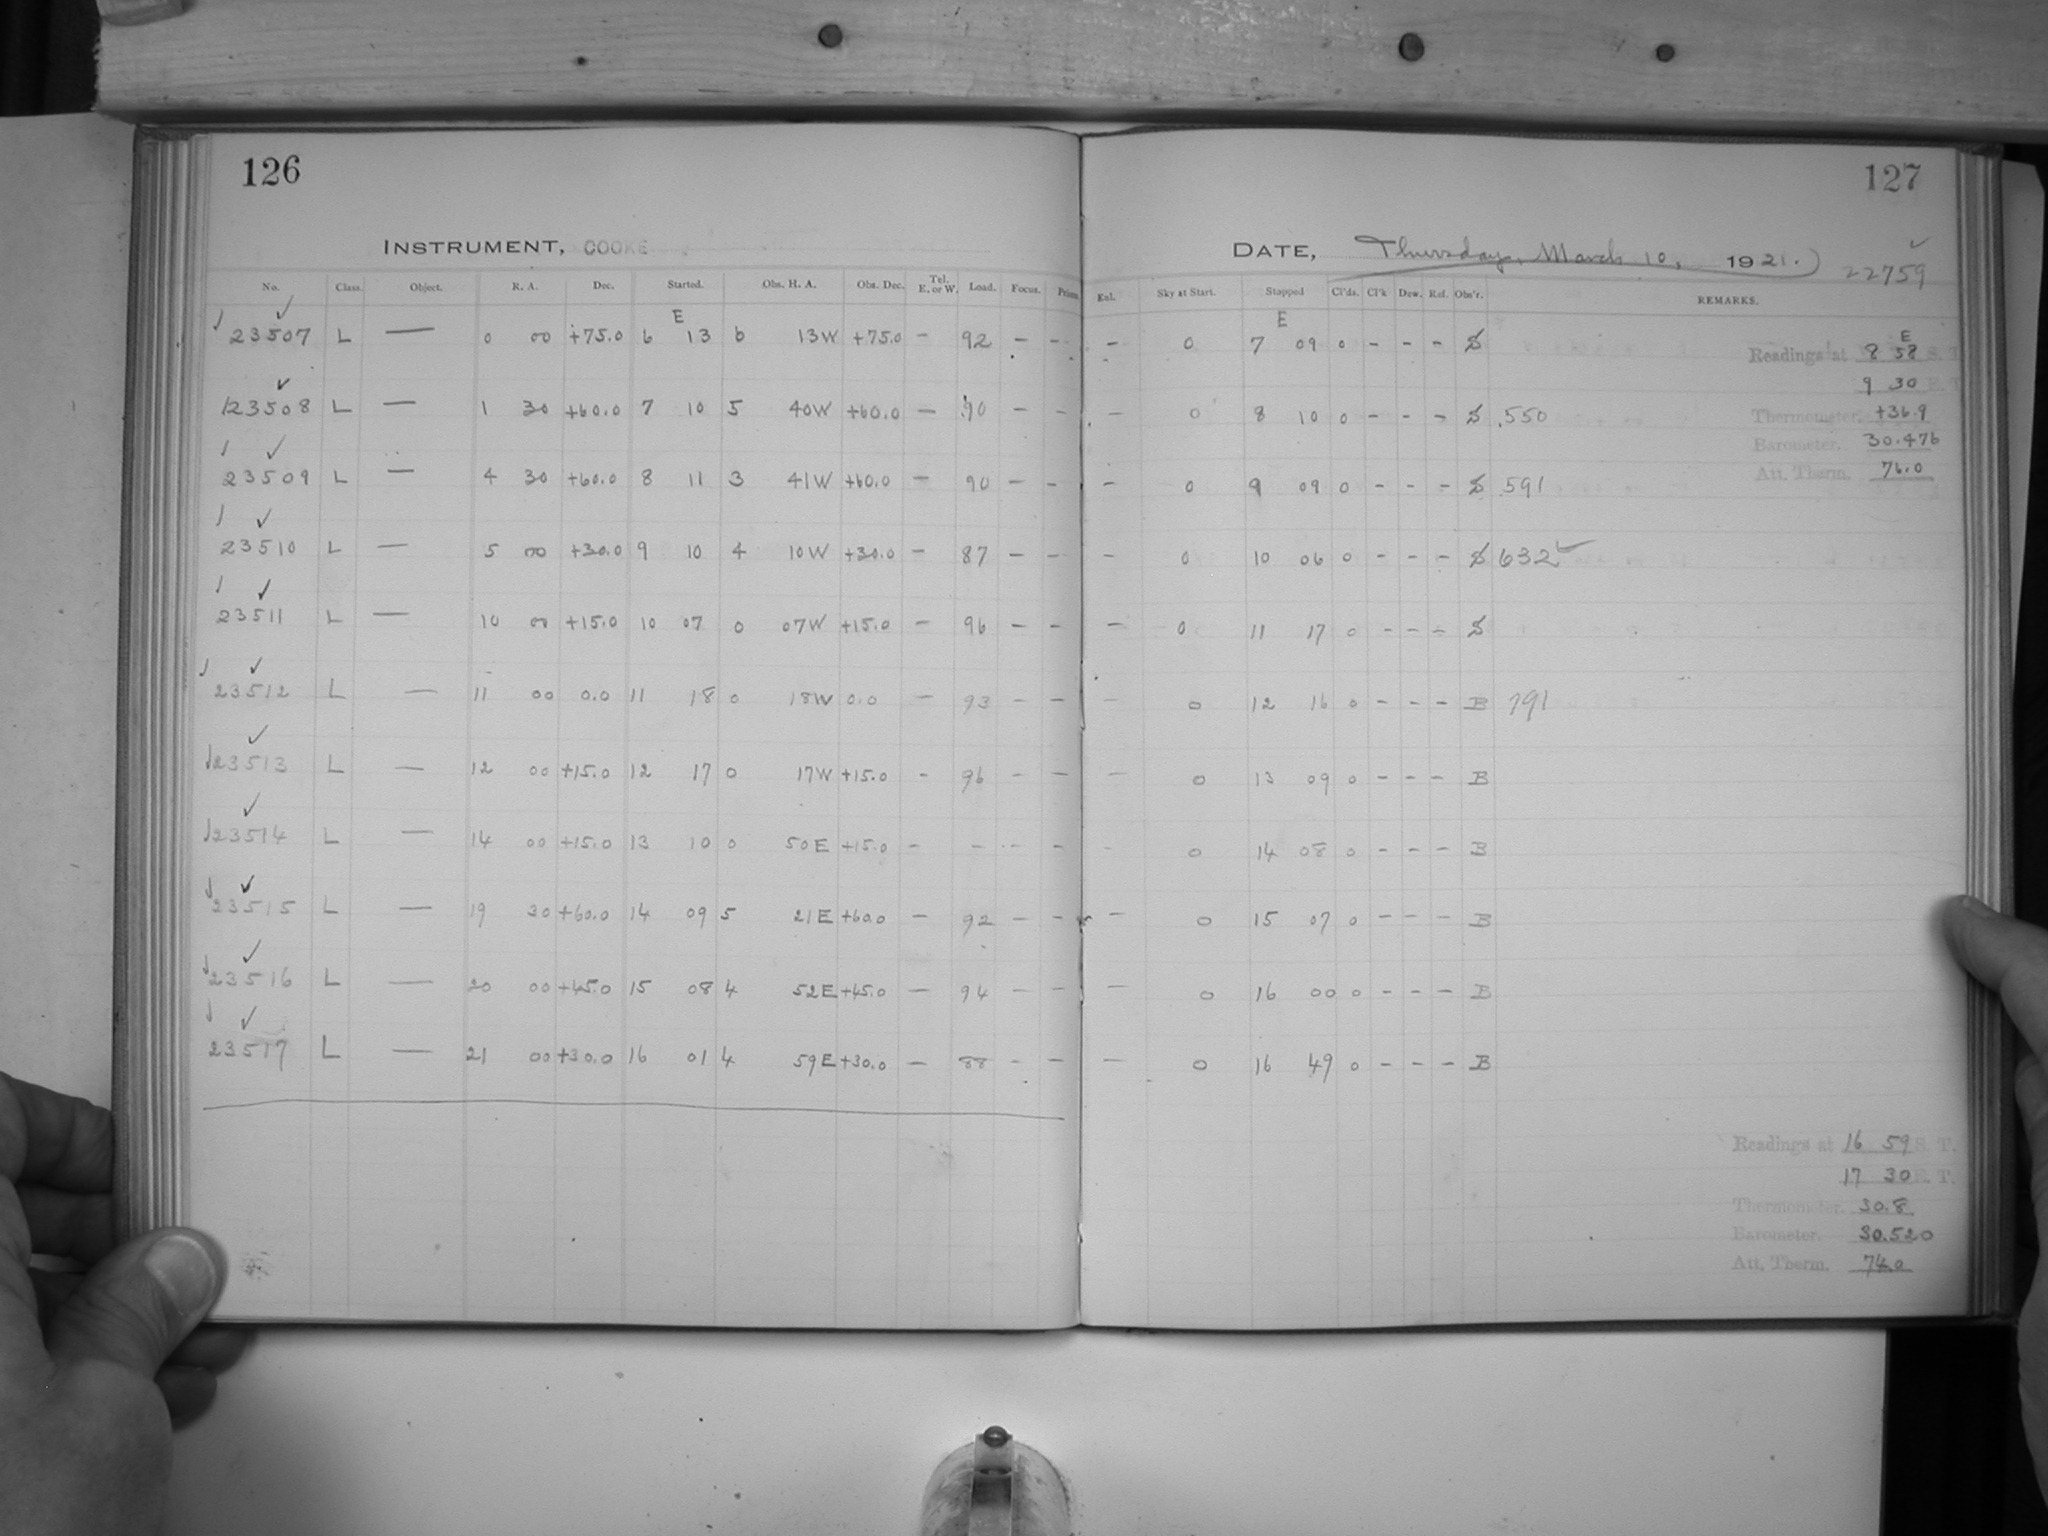 126
127
INSTRUMENT, COOKE
DATE, Thursday, March 10, 1921.
22759
No. Class. Object. R. A. Dec. Started. Obs. H. A. Obs. Dec. Tel. E. or W. Load. Focus. Prisms Enl. Sky at Start. Stopped Cl'ds. Cl'k Dew. Ref. Obs'r. REMARKS.
E E
23507 L — 0 00 +75.0 6 13 6 13W +75.0 — 92 — — — 0 7 09 0 - - - S
23508 L — 1 30 +60.0 7 10 5 40W +60.0 — 90 — — — 0 8 10 0 - - - S .550
23509 L — 4 30 +60.0 8 11 3 41W +60.0 — 90 — — — 0 9 09 0 - - - S 591
23510 L — 5 00 +30.0 9 10 4 10W +30.0 — 87 — — — 0 10 06 0 - - - S 632
23511 L — 10 00 +15.0 10 07 0 07W +15.0 — 96 — — — 0 11 17 0 - - - S
23512 L — 11 00 0.0 11 18 0 18W 0.0 — 93 — — — 0 12 16 0 - - - B 791
23513 L — 12 00 +15.0 12 17 0 17W +15.0 - 96 — — — 0 13 09 0 - - - B
23514 L — 14 00 +15.0 13 10 0 50E +15.0 - - - - - 0 14 08 0 - - - B
23515 L — 19 30 +60.0 14 09 5 21E +60.0 — 92 — — — 0 15 07 0 - - - B
23516 L — 20 00 +45.0 15 08 4 52E +45.0 — 94 — — — 0 16 00 0 - - - B
23517 L — 21 00 +30.0 16 01 4 59E +30.0 — 88 — — — 0 16 49 0 - - - B
E
Readings at 8 58 S. T.
9 30 E. T.
Thermometer. +36.9
Barometer. 30.476
Att. Therm. 76.0
Readings at 16 59 S. T.
17 30 E. T.
Thermometer. 30.8
Barometer. 30.520
Att. Therm. 74.0